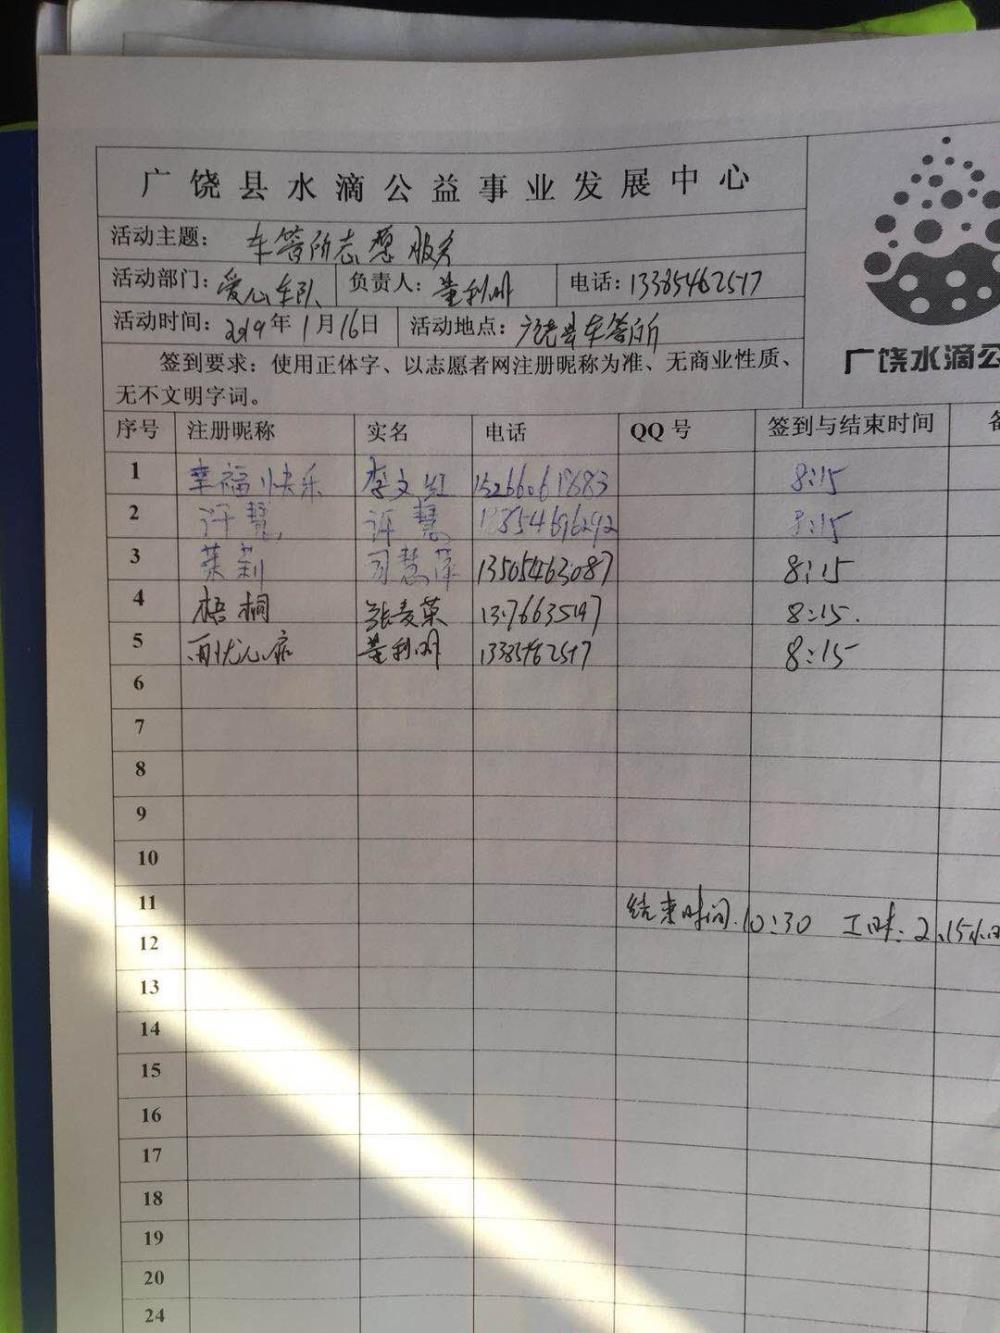 广饶县水滴公益事业发展中心
活动主题: 车管所志愿服务
活动部门: 爱心车队 负责人: 董利明 电话: 13385462517
活动时间: 2019年1月16日 活动地点: 广饶县车管所
签到要求: 使用正体字、以志愿者网注册昵称为准、无商业性质、
无不文明字词。
广饶水滴公
序号 注册昵称 实名 电话 QQ号 签到与结束时间
1 幸福快乐 李文红 15266061883 8:15
2 许慧 许慧 8:15
3 茉莉 司慧萍 13505463087 8:15
4 梧桐 8:15.
5 董利明 13385462517 8:15
6
7
8
9
10
11 结束时间:10:30 工时:2.15小时
12
13
14
15
16
17
18
19
20
24